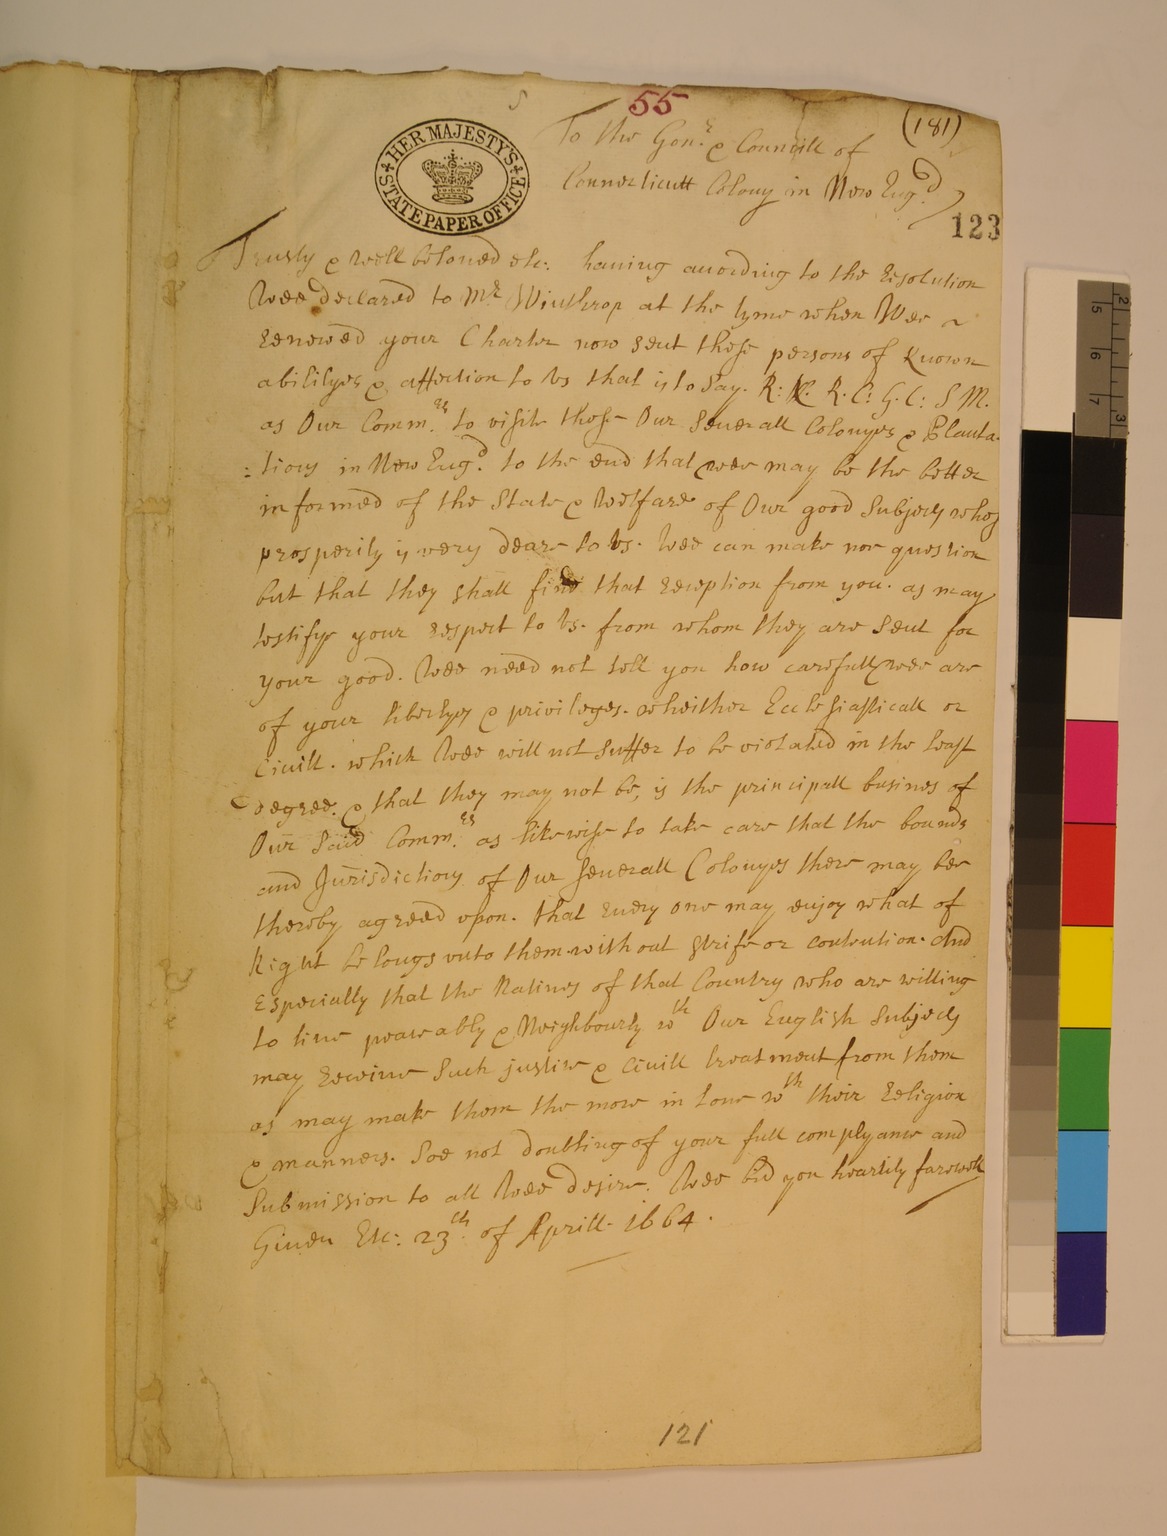 55
(181)
HER MAJESTY'S
STATE PAPER OFFICE
To the Gou.r & Councill of
Connecticutt Colony in New Eng.d
123
Trusty & well beloued etc: hauing according to the Resolution
Wee declared to Mr Winthrop at the tyme when Wee
renewed your Charter now sent these persons of known
abilityes & affection to Us that is to say. R: N. R. C: G. C: S M.
as Our Comm.rs to visite those Our Seuerall Colonyes & Planta-
:tions in New Eng.d to the end that wee may be the better
informed of the State & Welfare of Our good Subjects whos
prosperity is very deare to Us. Wee can make noe question
but that they shall find that reception from you. as may
testifye your respect to Us. from whom they are sent for
your good. Wee need not tell you how carefull wee are
of your libertyes & priviledges. wheither Ecclesiasticall or
Civill. which Wee will not suffer to be violated in the least
degree. & that they may not be, is the principall busines of
Our Said Comm.rs as likewise to take care that the bounds
and Jurisdictions of Our seuerall Colonyes there may bee
thereby agreed upon. that euery one may enjoy what of
Right belongs unto them without strife or contention. And
Especially that the Natiues of that Country who are willing
to liue peaceably & Neighbourly wth Our English Subjects
may receiue Such justice & Civill treatment from them
as may make them the more in loue wth their Religion
& manners. Soe not doubting of your full complyance and
Submission to all Wee desire. Wee bid you heartily farewell
Giuen Etc: 23th. of Aprill. 1664.
121